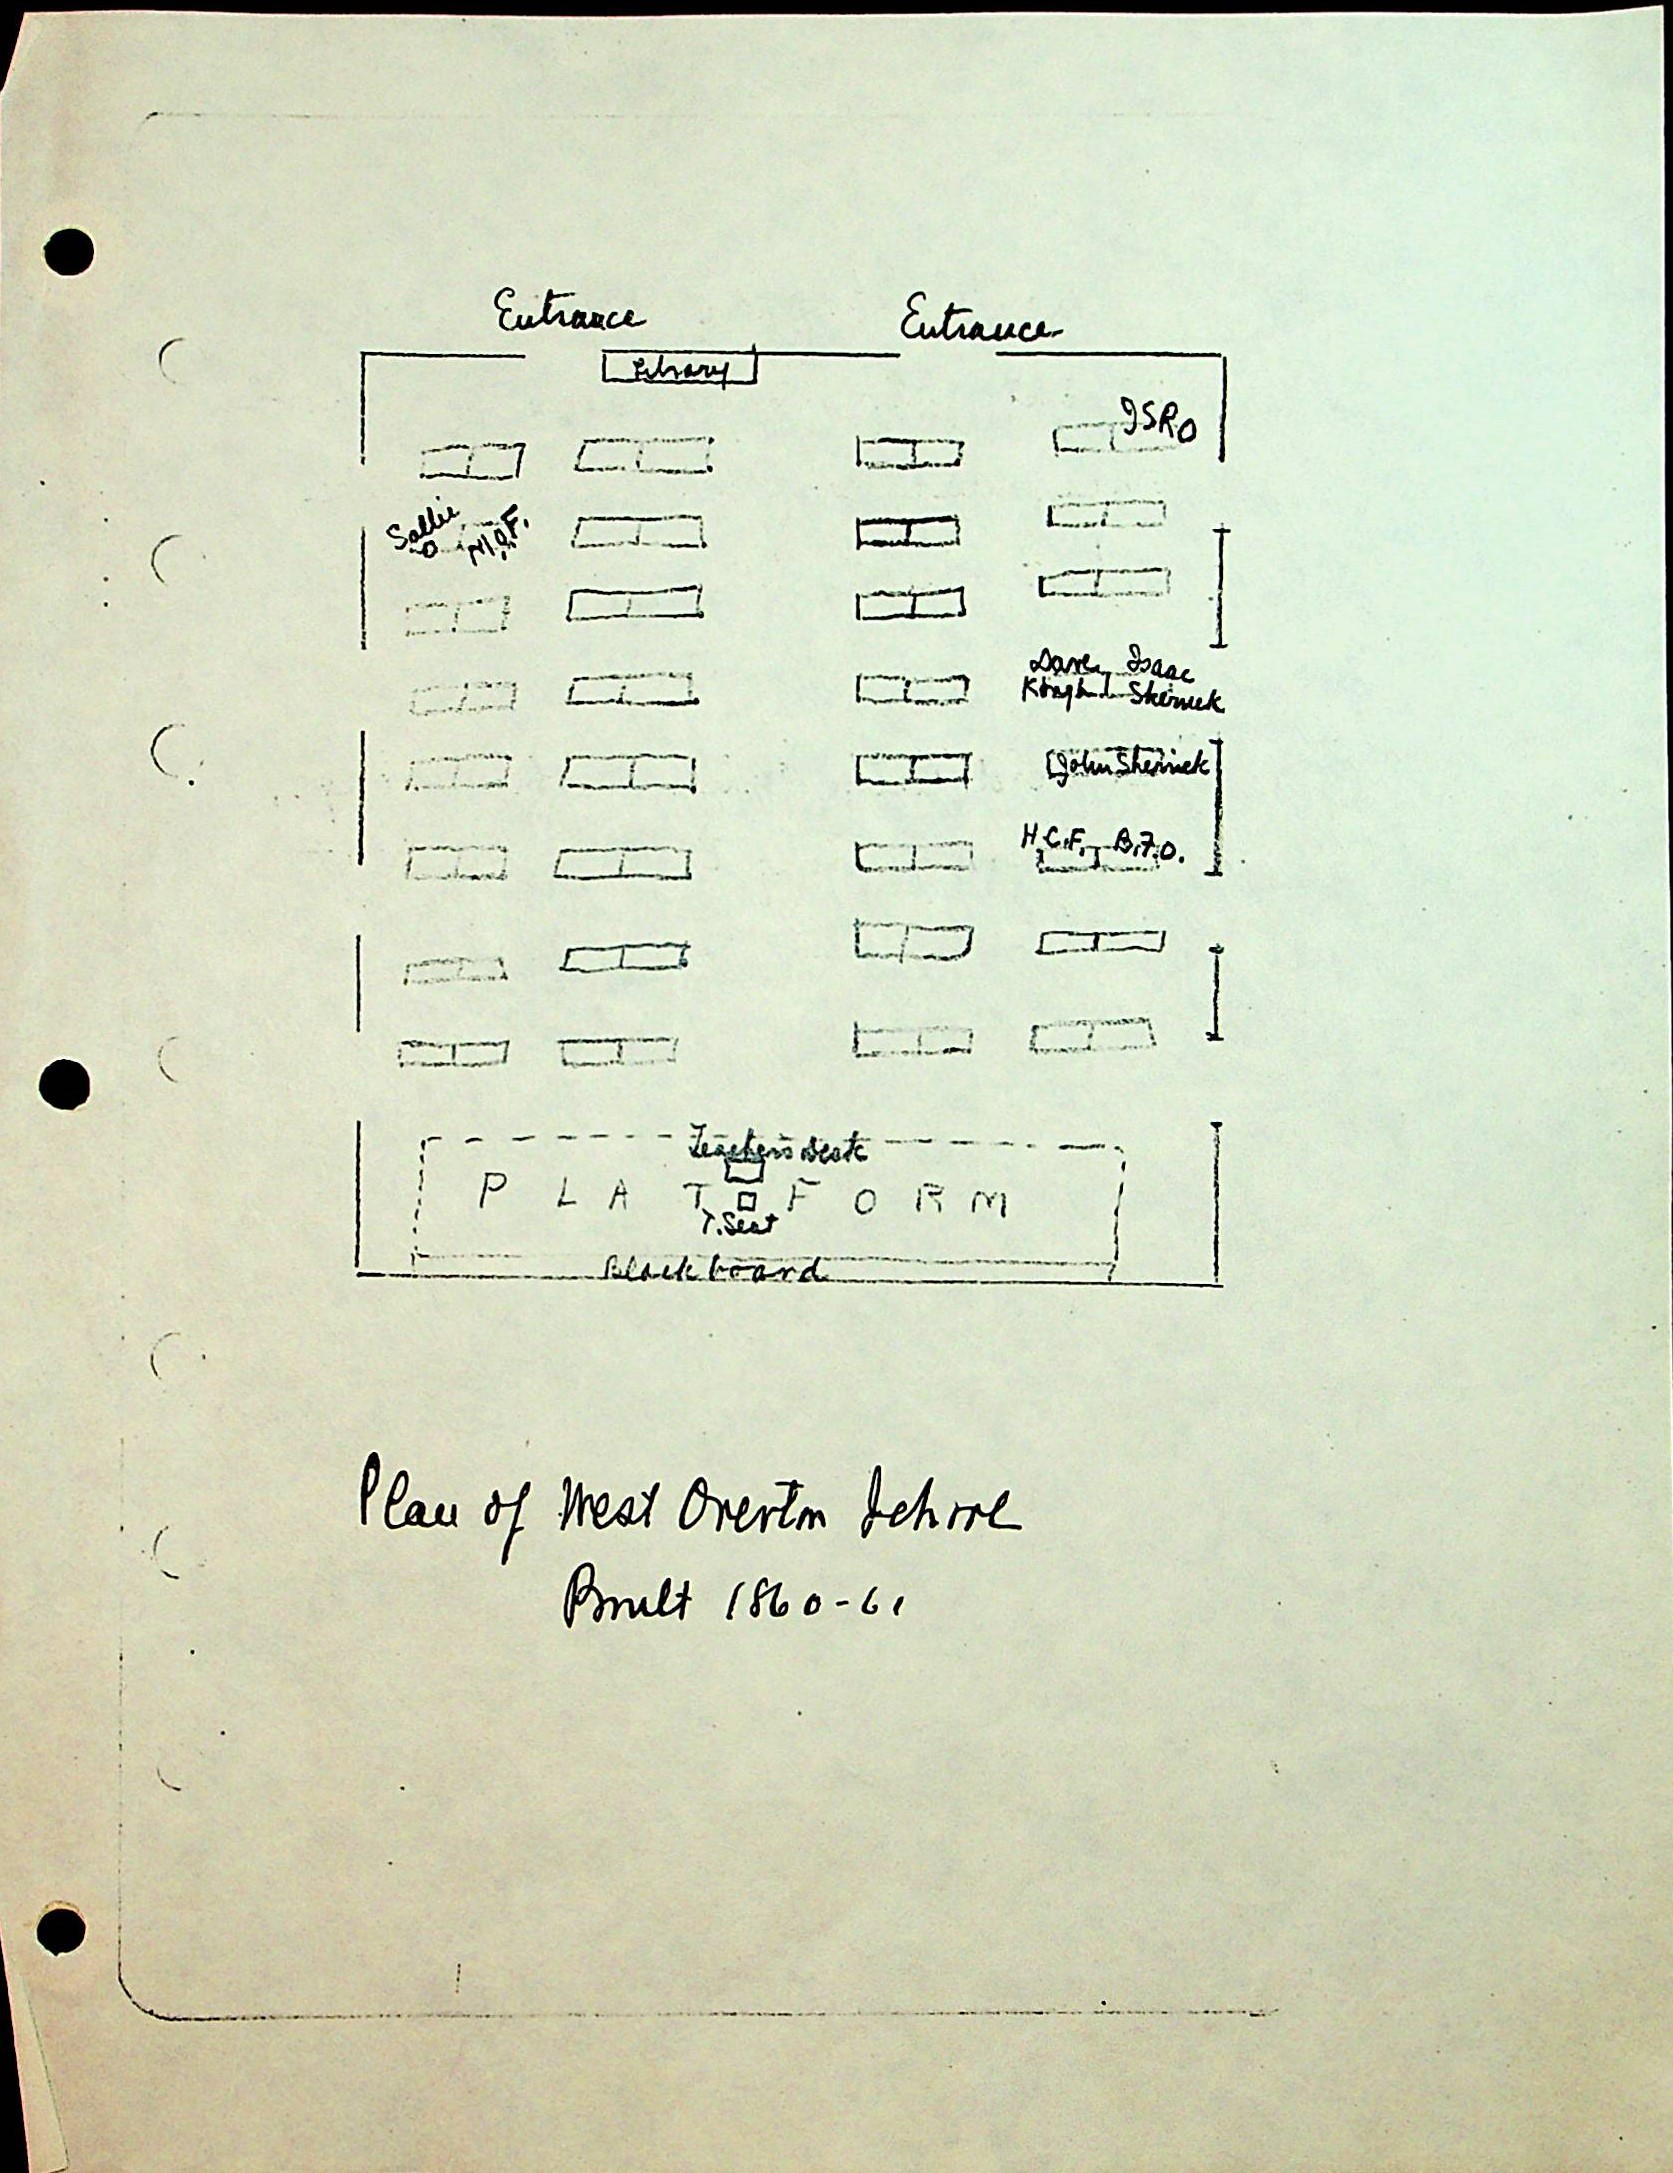 Entrance Entrance
Library
JSRO
Sallie M.O.F.
O
Dave Isaac
Sherrick
John Sherrick
H.C.F. B.F.O.
Teachers Desk
PLATFORM
T. Seat
Blackboard
Plan of West Overton School
Built 1860-61